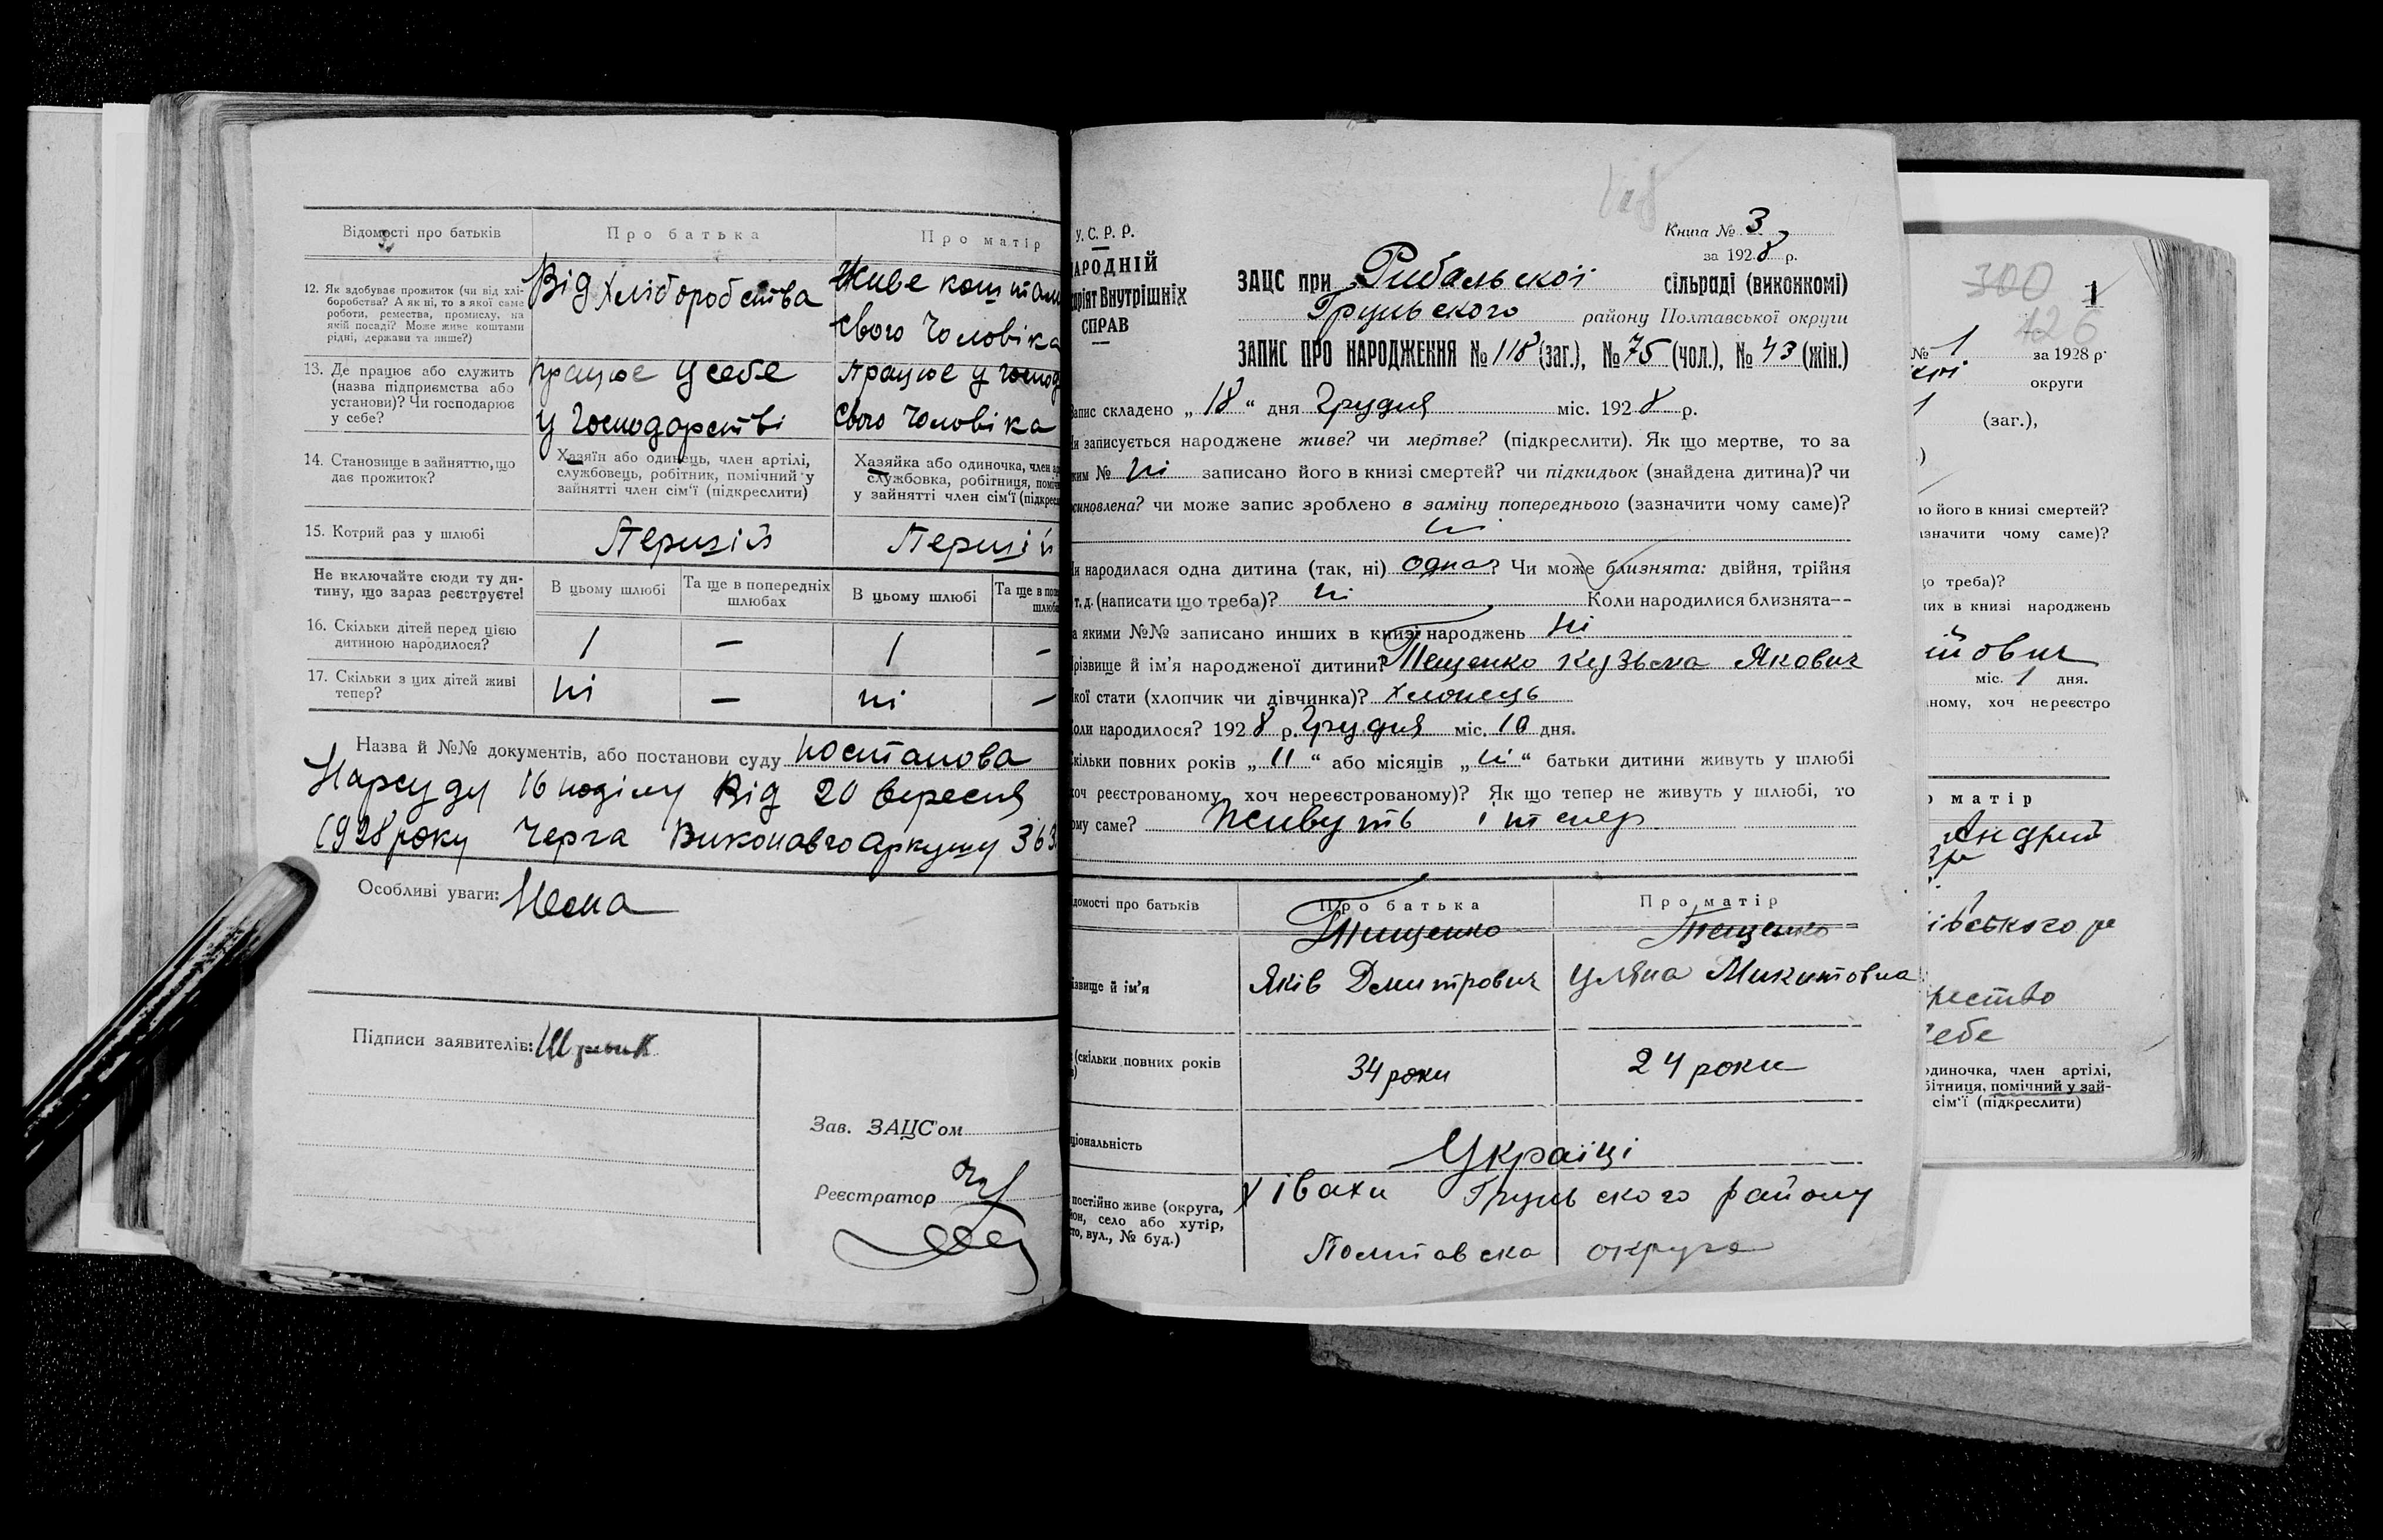 Відомості про батьків
Про батька
Про матір
12. Як здобуває прожиток (чи від хлі-
боробства? А як ні, то з якої саме
роботи, ремества, промислу, на
якій посаді? Може живе коштами
рідні, держави та инше?)
Від хліборобства
Живе коштами
свого чоловіка
13. Де працює або служить
(назва підприємства або
установи)? Чи господарює
у себе?
працює у себе
у господарстві
працює у господ
свого чоловіка
14. Становище в зайняттю, що
дає прожиток?
Хазяїн або одинець, член артілі,
службовець, робітник, помічний у
зайнятті член сім'ї (підкреслити)
Хазяйка або одиночка, член ар
службовка, робітниця, поміч
у зайнятті член сім'ї (підкрес
15. Котрий раз у шлюбі
Перший
Перший
Не включайте сюди ту ди-
тину, що зараз реєструєте!
В цьому шлюбі
Та ще в попередніх
шлюбах
В цьому шлюбі
Та ще в поп
шлюба
16. Скільки дітей перед цією
дитиною народилося?
1 — 1 —
17. Скільки з цих дітей живі
тепер?
ні — ні —
Назва й №№ документів, або постанови суду постанова
Нарсуду 16 поділу Від 20 вересня
1928 року Черга Виконавчо аркушу 363
Особливі уваги: Нема
Підписи заявителів:
Зав. ЗАЦС'ом
Реєстратор
У. С. Р. Р.
АРОДНІЙ
ріят Внутрішніх
СПРАВ
118
Книга № 3
за 1928 р.
ЗАЦС при Рибальскої сільраді (виконкомі)
Грунського району Полтавської округи
ЗАПИС ПРО НАРОДЖЕННЯ № 118 (заг.), № 75 (чол.), № 43 (жін.)
апис складено „18“ дня Грудня міс. 1928 р.
и записується народжене живе? чи мертве? (підкреслити). Як що мертве, то за
ким № ні записано його в книзі смертей? чи підкидьок (знайдена дитина)? чи
синовлена? чи може запис зроблено в заміну попереднього (зазначити чому саме)?
ні
и народилася одна дитина (так, ні) одна? Чи може близнята: двійня, трійня
т. д. (написати що треба)? ні Коли народилися близнята—
а якими №№ записано инших в книзі народжень ні
різвище й ім'я народженої дитини? Тещенко Кузьма Якович
кої стати (хлопчик чи дівчинка)? хлопець
оли народилося? 1928 р. Грудня міс. 10 дня.
кільки повних років „11“ або місяців „ні“ батьки дитини живуть у шлюбі
хоч реєстрованому, хоч нереєстрованому)? Як що тепер не живуть у шлюбі, то
ому саме? Живуть і тепер
домості про батьків
Про батька
Про матір
ізвище й ім'я
Тищенко
Яків Дмитрович
Тещенко
Уляна Микитовна
(скільки повних років
34 роки
24 роки
ціональність
Україці
постійно живе (округа,
йон, село або хутір,
сто, вул., № буд.)
Хівахи Грунського району
Полтавска округа
300
1
126
№ 1 за 1928 р.
округи
1 (заг.),
о його в книзі смертей?
азначити чому саме)?
о треба)?
их в книзі народжень
йович
міс. 1 дня.
ному, хоч нереєстро
матір
Андрій
івського ра
рество
себе
диночка, член артілі,
бітниця, помічний у зай-
сім'ї (підкреслити)